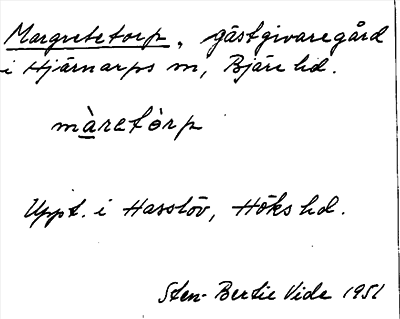 Margretetorp, gästgivaregård
i Hjärnarps sn, Bjäre hd.
màretòrp
Uppt. i Hasslöv, Höks hd.
Sten-Bertil Vide 1951